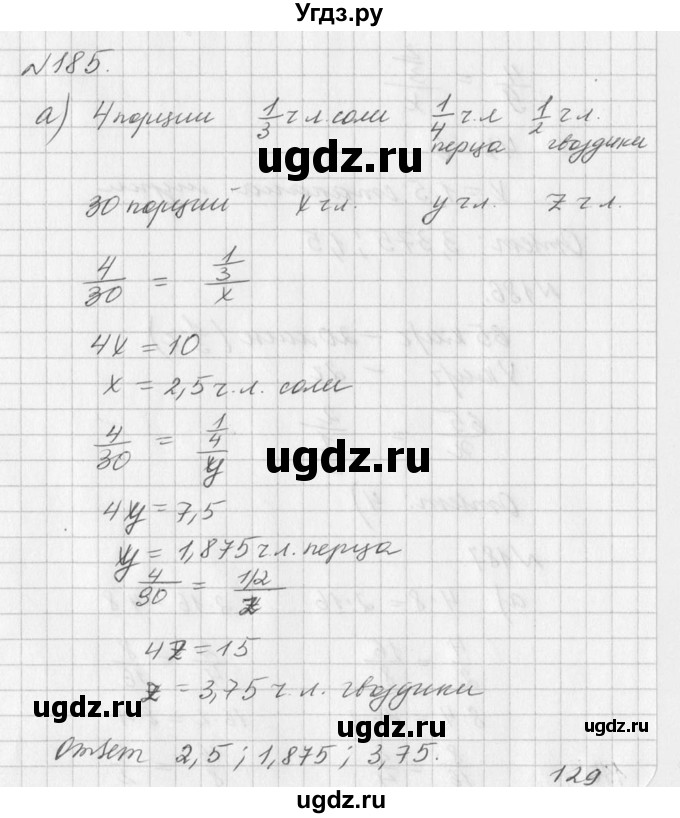 Угдз.ру
№185.
а) 4 порции 1/3 ч л. соли 1/4 ч л перца 1/2 ч л. гвоздики
ugdz.ru ugdz.ru
30 порций x ч л. y ч л. z ч л.
4/30 = 1/3/x
4x = 10
x = 2,5 ч. л. соли
ugdz.ru ugdz.ru
4/30 = 1/4/y
4y = 7,5
y = 1,875 ч л. перца
4/30 = 1/2/z
4z = 15
z = 3,75 ч. л. гвоздики
ugdz.ru ugdz.ru ugdz.ru
Ответ 2,5 ; 1,875 ; 3,75.
129
ugdz.ru ugdz.ru